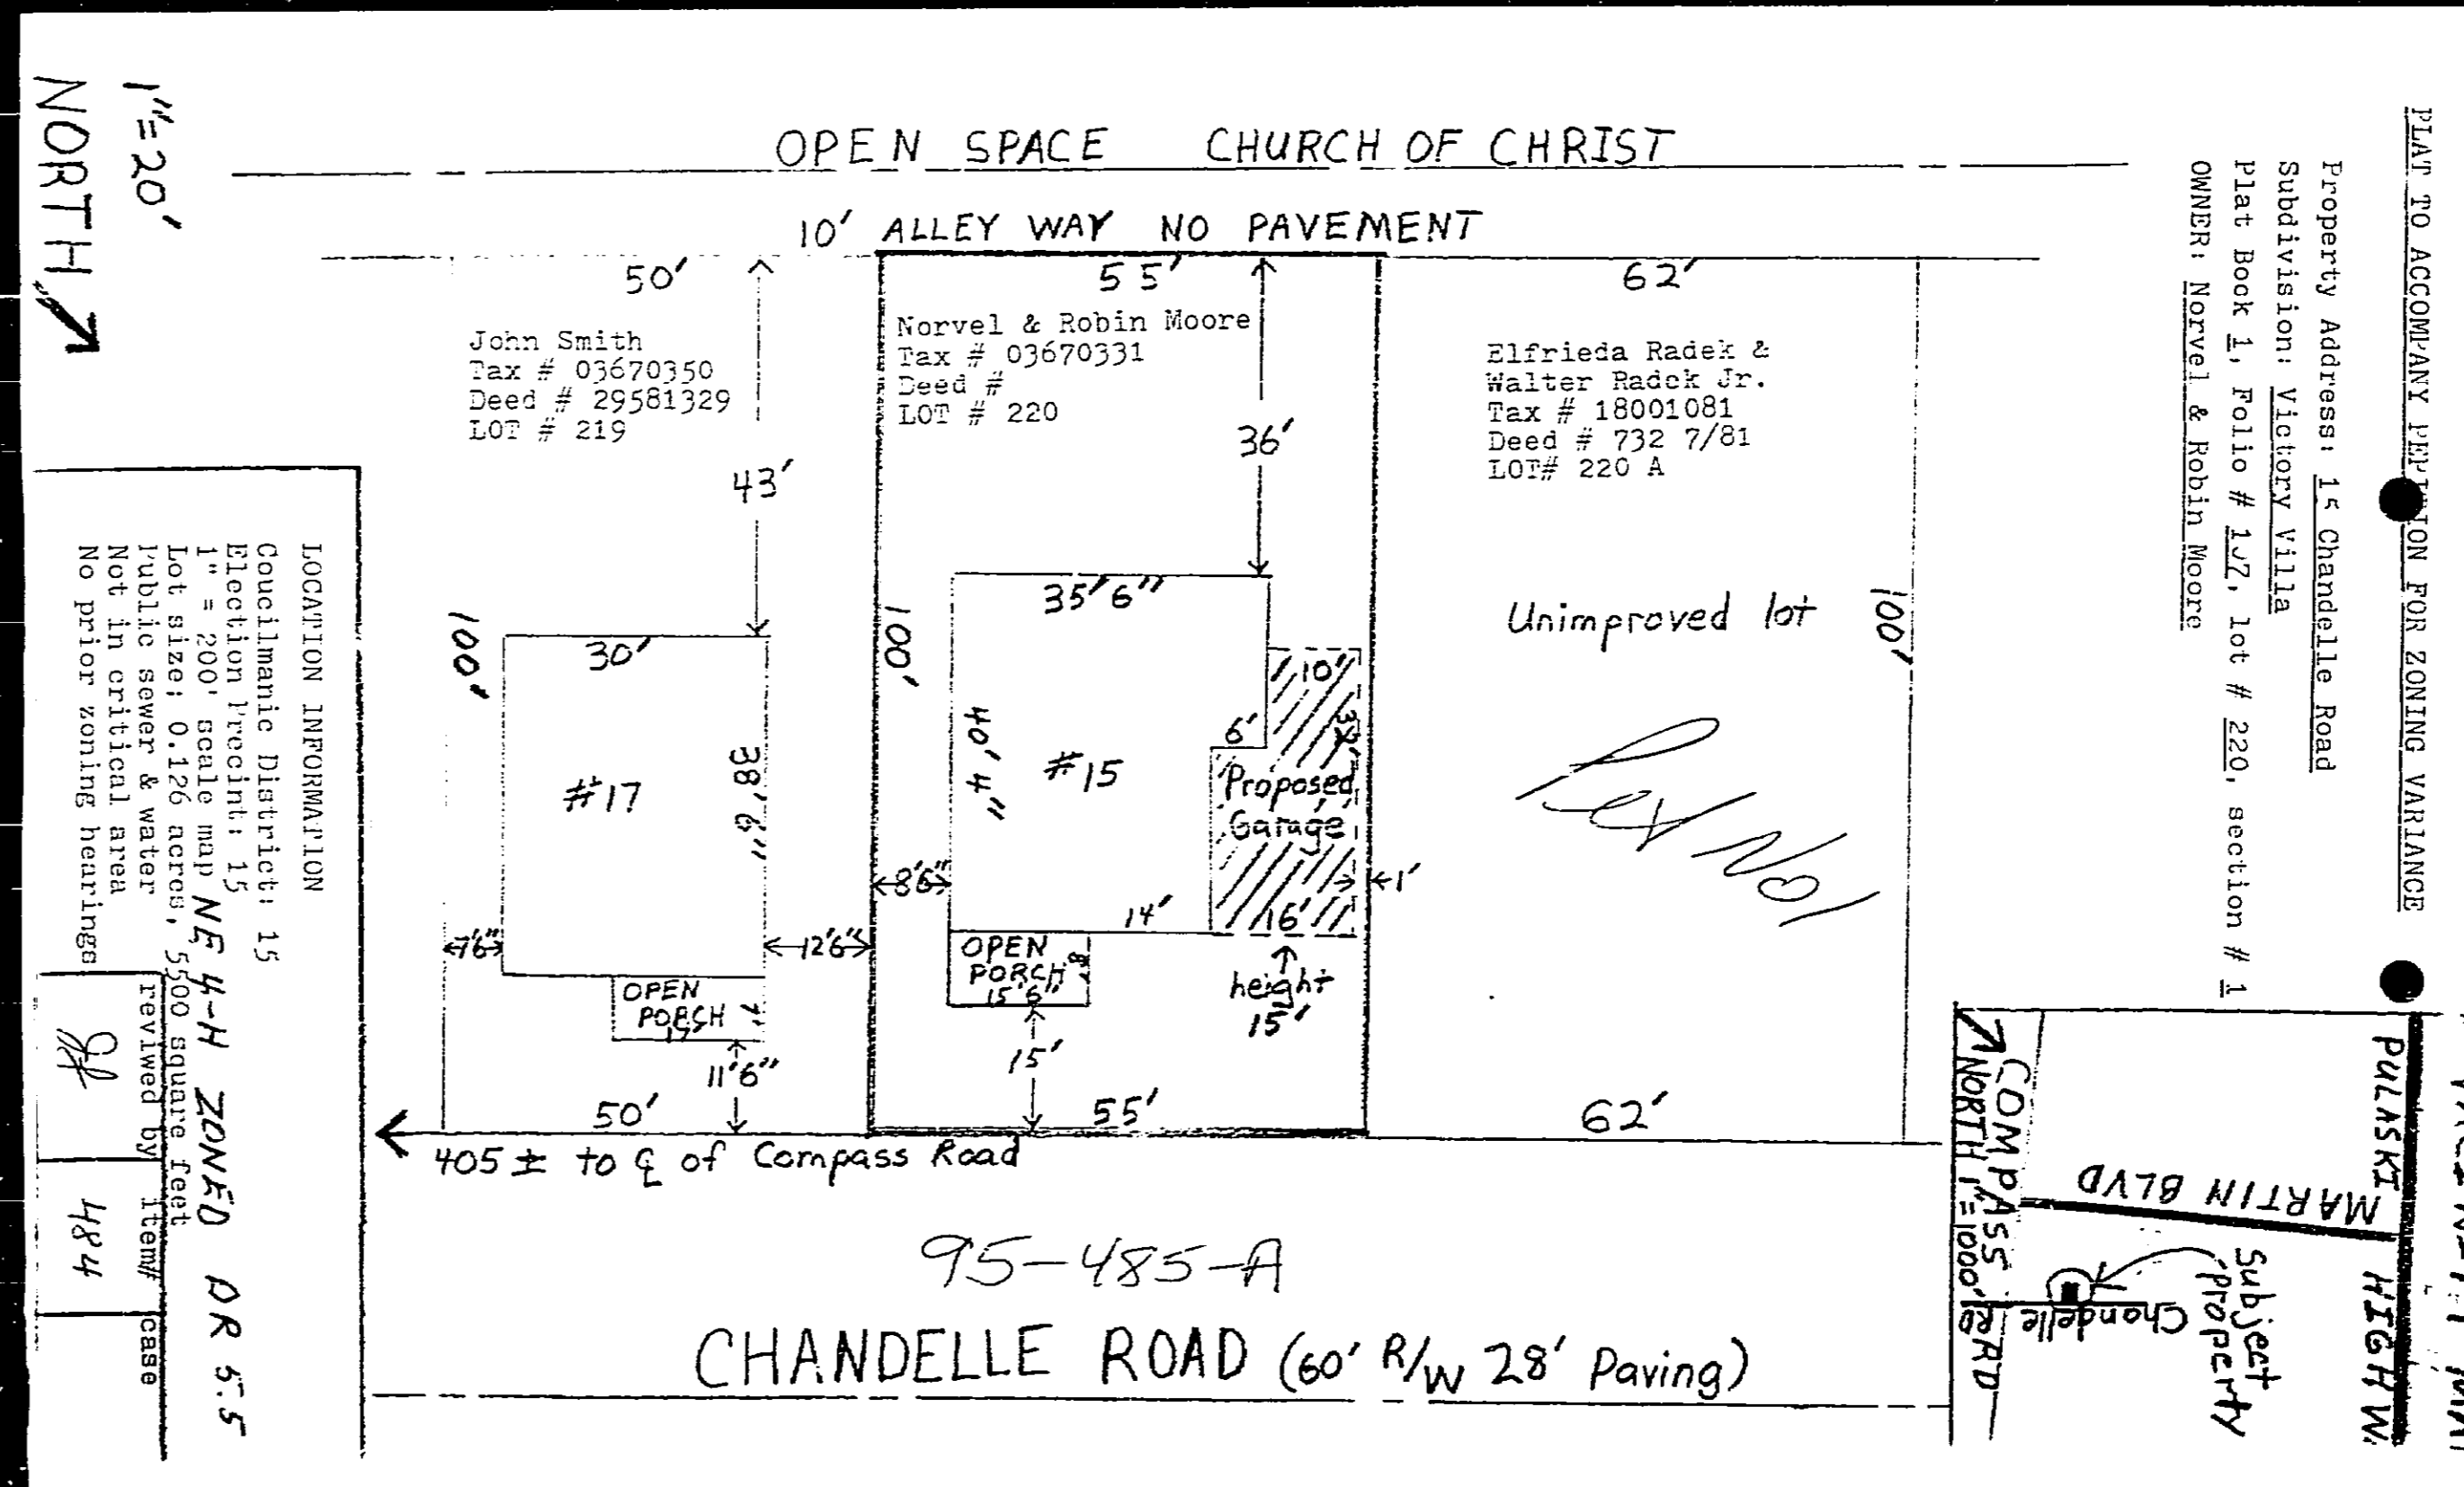 PLAT TO ACCOMPANY FOR ZONING VARIANCE
Property Address: 15 Chandelle Road
Subdivision: Victory Villa
Plat Book 1, Folio # lot # 220, section # 1
OWNER: Norvel & Robin Moore
1"=20'
NORTH
OPEN SPACE CHURCH OF CHRIST
10' ALLEY WAY NO PAVEMENT
50'
55'
62'
John Smith
Tax # 03670350
Deed # 29581329
LOT # 219
Norvel & Robin Moore
Tax # 03670331
Deed #
LOT # 220
Elfrieda Radek &
Walter Radek Jr.
Tax # 18001081
Deed # 732 7/81
LOT# 220 A
43'
36'
100'
100'
100'
Unimproved lot
30'
35'6"
10'
6'
38'6"
40'4"
#17
#15
Proposed
Garage
8'6"
1'
14'
16'
7'6"
12'6"
OPEN
PORCH
7'
OPEN
PORCH
8'
15'6"
height
15'
11'6"
15'
50'
55'
62'
405 ± to ℄ of Compass Road
95-485-A
CHANDELLE ROAD (60' R/W 28' Paving)
LOCATION INFORMATION
Coucilmanic District: 15
Election Precint: 15
1" = 200' scale map NE 4-H ZONED DR 5.5
Lot size: 0.126 acres, 5500 square feet
Public sewer & water
Not in critical area
No prior zoning hearings
reviwed by item# case
484
PULASKI HIGHW.
MARTIN BLVD
COMPASS RD
NORTH 1"=1000'
Chandelle
Subject
property